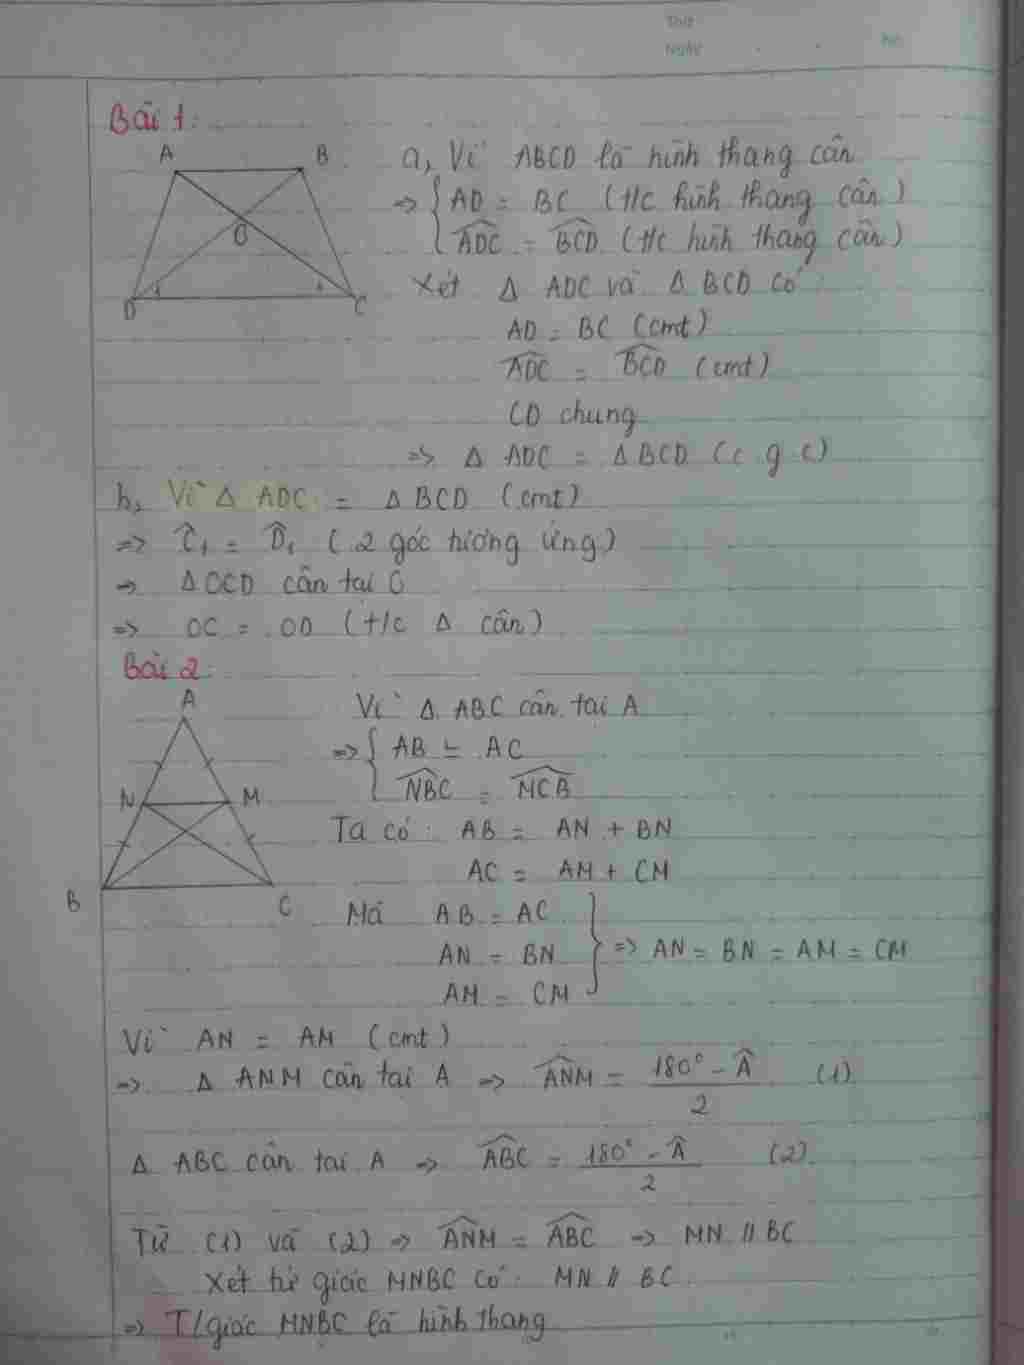 Thứ
Ngày . . No.
Bài 1:
A B
O
D C
a, Vì ABCD là hình thang cân
=> { AD = BC (t/c hình thang cân)
{ \widehat{ADC} = \widehat{BCD} (t/c hình thang cân)
Xét Δ ADC và Δ BCD có
AD = BC (cmt)
\widehat{ADC} = \widehat{BCD} (cmt)
CD chung
=> Δ ADC = Δ BCD (c g c)
b, Vì Δ ADC = Δ BCD (cmt)
=> Ĉ₁ = D̂₁ (2 góc tương ứng)
=> Δ OCD cân tại O
=> OC = OD (t/c Δ cân)
Bài 2:
A
N M
B C
Vì Δ ABC cân tại A
=> { AB = AC
{ \widehat{NBC} = \widehat{MCB}
Ta có: AB = AN + BN
AC = AM + CM
Mà AB = AC
AN = BN } => AN = BN = AM = CM
AM = CM
Vì AN = AM (cmt)
=> Δ ANM cân tại A => \widehat{ANM} = \frac{180° - Â}{2} (1)
Δ ABC cân tại A => \widehat{ABC} = \frac{180° - Â}{2} (2)
Từ (1) và (2) => \widehat{ANM} = \widehat{ABC} => MN // BC
Xét tứ giác MNBC có: MN // BC
=> T/giác MNBC là hình thang